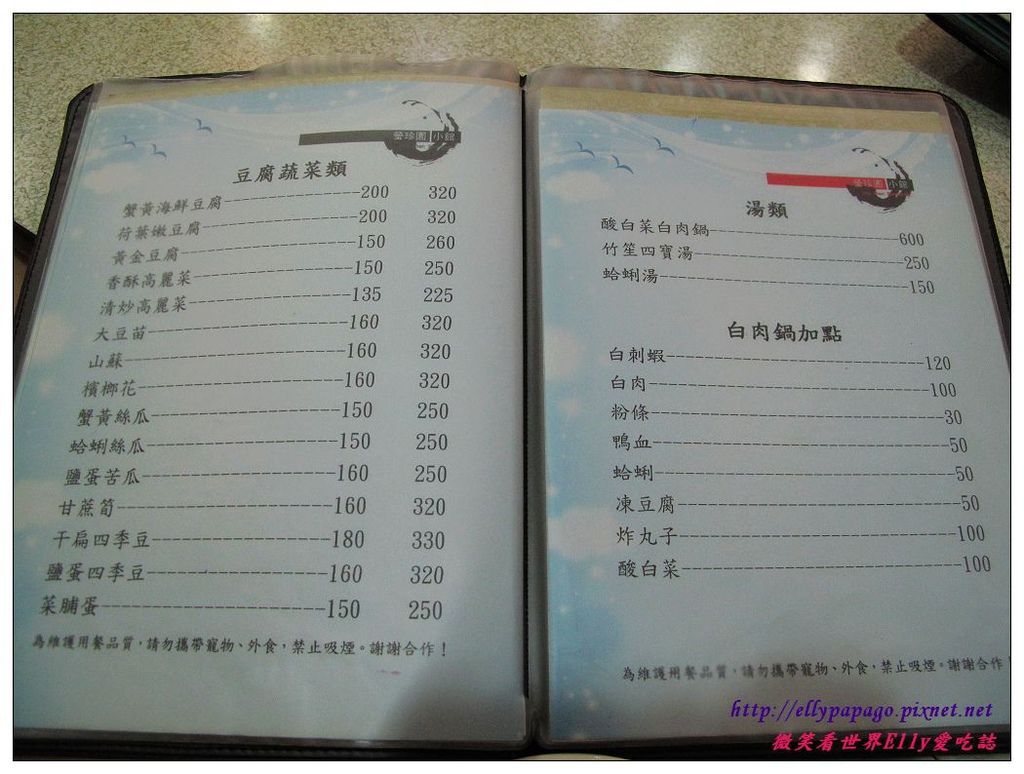 螢珍園小館
豆腐蔬菜類
蟹黃海鮮豆腐 200 320
荷葉嫩豆腐 200 320
黃金豆腐 150 260
香酥高麗菜 150 250
清炒高麗菜 135 225
大豆苗 160 320
山蘇 160 320
檳榔花 160 320
蟹黃絲瓜 150 250
蛤蜊絲瓜 150 250
鹽蛋苦瓜 160 250
甘蔗筍 160 320
干扁四季豆 180 330
鹽蛋四季豆 160 320
菜脯蛋 150 250
為維護用餐品質，請勿攜帶寵物、外食，禁止吸煙。謝謝合作！
螢珍園小館
湯類
酸白菜白肉鍋 600
竹笙四寶湯 250
蛤蜊湯 150
白肉鍋加點
白刺蝦 120
白肉 100
粉條 30
鴨血 50
蛤蜊 50
凍豆腐 50
炸丸子 100
酸白菜 100
為維護用餐品質，請勿攜帶寵物、外食，禁止吸煙。謝謝合作！
http://ellypapago.pixnet.net
微笑看世界Elly愛吃誌